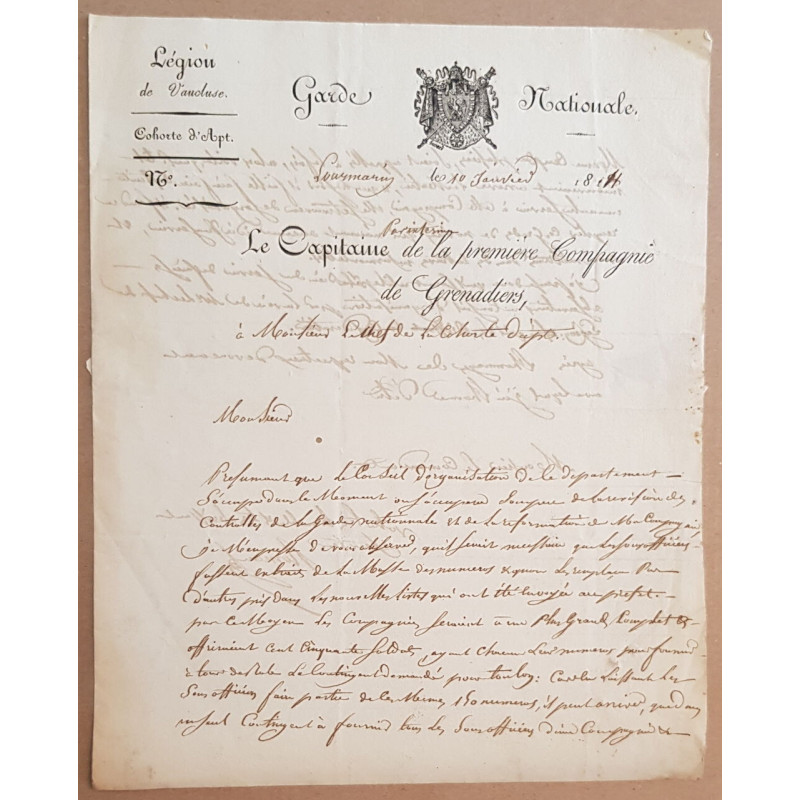 Légion
de Vaucluse.
Cohorte d'Apt.
N.º
Garde Nationale.
Lourmarin le 10 Janvier 1814
Par interim
Le Capitaine de la première Compagnie
de Grenadiers,
à Monsieur Le Chef de La Cohorte d'apt.
Monsieur
Presumant que Le Conseil d'organisation de le departement
S'occupe dans le Moment ou s'occupera de la revision des
Controlles de la Garde nationnale et de la reformation de Ma Compagnie,
Je M'empresse de vous observer, qu'il serait necessaire que les sous officiers
fussent de la Masse des numeros & qu'on Les remplaça Par
d'autres pris dans Les nouvelles listes qui ont été envoyées au prefet
par ce Moyen Les Compagnies seraient à un Plus Grand Complet &
offriraient Cent Cinquante Soldats, ayant Chacun Leur numeros pour fournir
à tour de Role Le Contingent demandé pour toulon; Car en Laissant Les
Sous officiers faire partie de les Memes 150 numeros, il peut arriver, que dans
un seul Contingent à fournir tous Les Sous officiers d'une Compagnie &